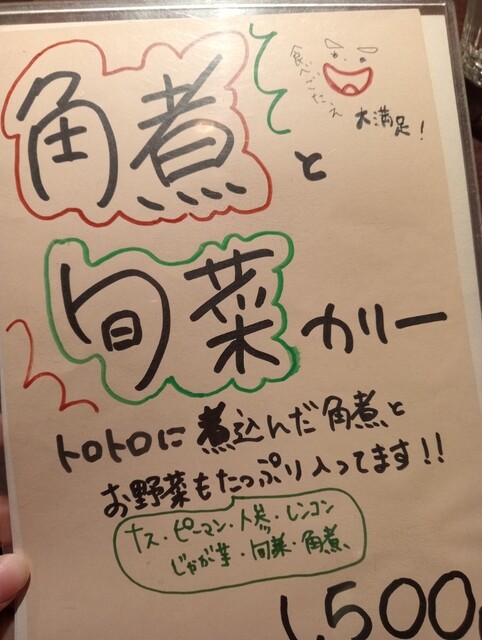 食べごたえ
大満足!
角煮
と
旬菜カリー
トロトロに煮込んだ角煮と
お野菜もたっぷり入ってます!!
ナス・ピーマン・人参・レンコン
じゃが芋・旬菜・角煮
1,500